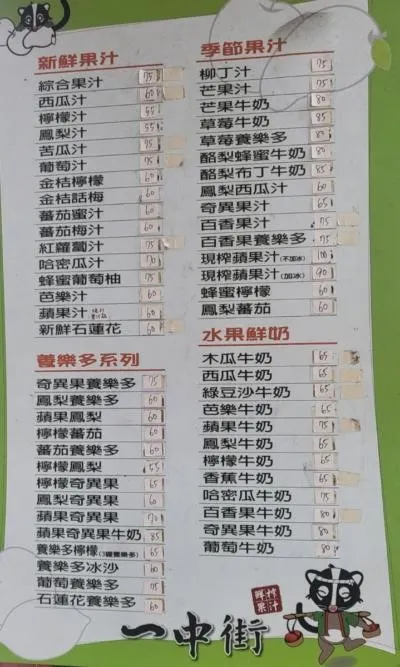 新鮮果汁
綜合果汁 75
西瓜汁 60
檸檬汁 55
鳳梨汁 55
苦瓜汁 75
葡萄汁 75
金桔檸檬 60
金桔話梅 60
蕃茄蜜汁 60
蕃茄梅汁 60
紅蘿蔔汁 75
哈密瓜汁 70
蜂蜜葡萄柚 75
芭樂汁 60
蘋果汁 60
新鮮石蓮花 60
養樂多系列
奇異果養樂多 75
鳳梨養樂多 60
蘋果鳳梨 60
檸檬蕃茄 60
蕃茄養樂多 60
檸檬鳳梨 55
檸檬奇異果 65
鳳梨奇異果 60
蘋果奇異果 70
蘋果奇異果牛奶 85
養樂多檸檬(3罐養樂多) 60
養樂多冰沙 60
葡萄養樂多 75
石蓮花養樂多 60
季節果汁
柳丁汁 75
芒果汁 75
芒果牛奶 80
草莓牛奶 85
草莓養樂多 80
酪梨蜂蜜牛奶 85
酪梨布丁牛奶 85
鳳梨西瓜汁 60
奇異果汁 65
百香果汁 75
百香果養樂多 75
現榨蘋果汁(不加冰) 100
現榨蘋果汁(加冰) 90
蜂蜜檸檬 60
鳳梨蕃茄 60
水果鮮奶
木瓜牛奶 65
西瓜牛奶 65
綠豆沙牛奶 65
芭樂牛奶 65
蘋果牛奶 75
鳳梨牛奶 65
檸檬牛奶 65
香蕉牛奶 65
哈密瓜牛奶 75
百香果牛奶 80
奇異果牛奶 80
葡萄牛奶 80
鮮榨果汁
一中街